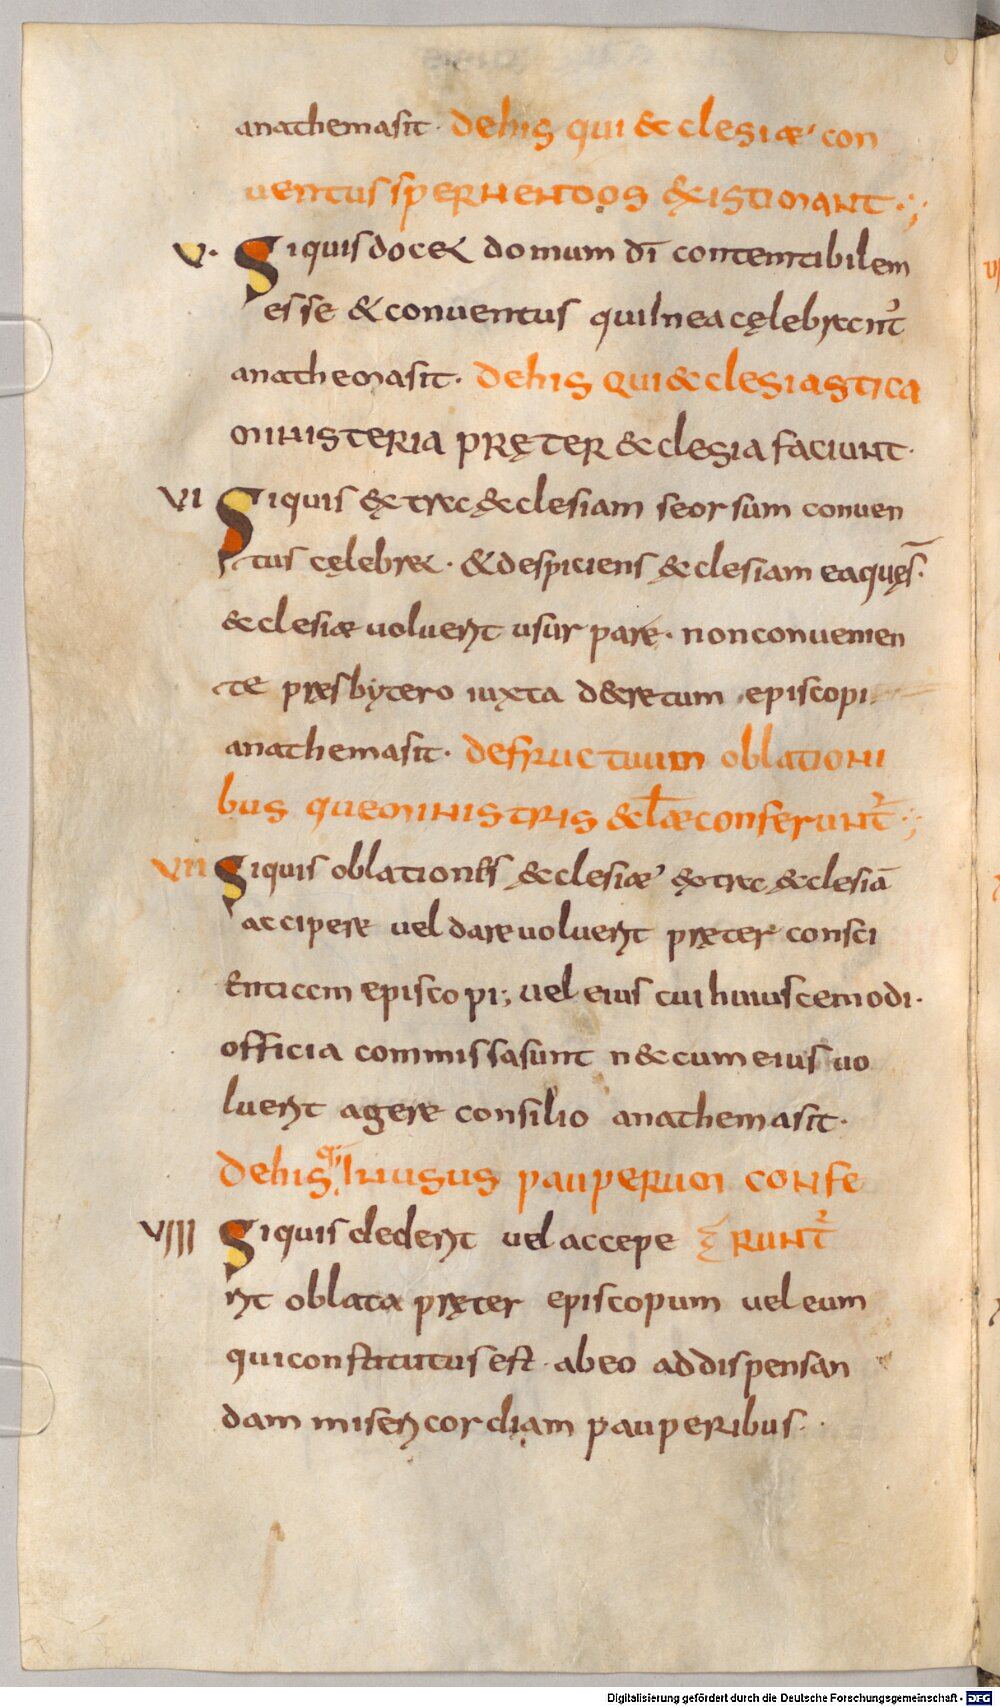 anathemasit. dehis qui & clesiæ con
uentus spernendos existimant.;
V. Siquis doc& domum dī contemtibilem
esse & conuentus qui in ea cęlebrant᷑
anathemasit. dehis qui & clesiastica
ministeria pręter & clesia faciunt.
VI Siquis extra & clesiam seorsum conuen
tus cęlebr&. & despiciens & clesiam ea quę s̄.
& clesiæ uoluerit usurpare. non conuenien
te presbytero iuxta decretum episcopi
anathemasit. de fructuum oblationi
bus que ministris & cl̄æ conferunt᷑.;
VII Siquis oblationes & clesiæ extra & clesiā
accipere uel dare uoluerit pręter consci
entiam episcopi; uel eius cui huiuscemodi.
officia commissa sunt n& cum eius uo
luerit agere consilio anathemasit.
dehis qui in usus pauperum confe
VIII Siquis dederit uel accepe runt᷑
rit oblata pręter episcopum uel eum
qui constitutus est. ab eo ad dispensan
dam misericordiam pauperibus.
Digitalisierung gefördert durch die Deutsche Forschungsgemeinschaft - DFG